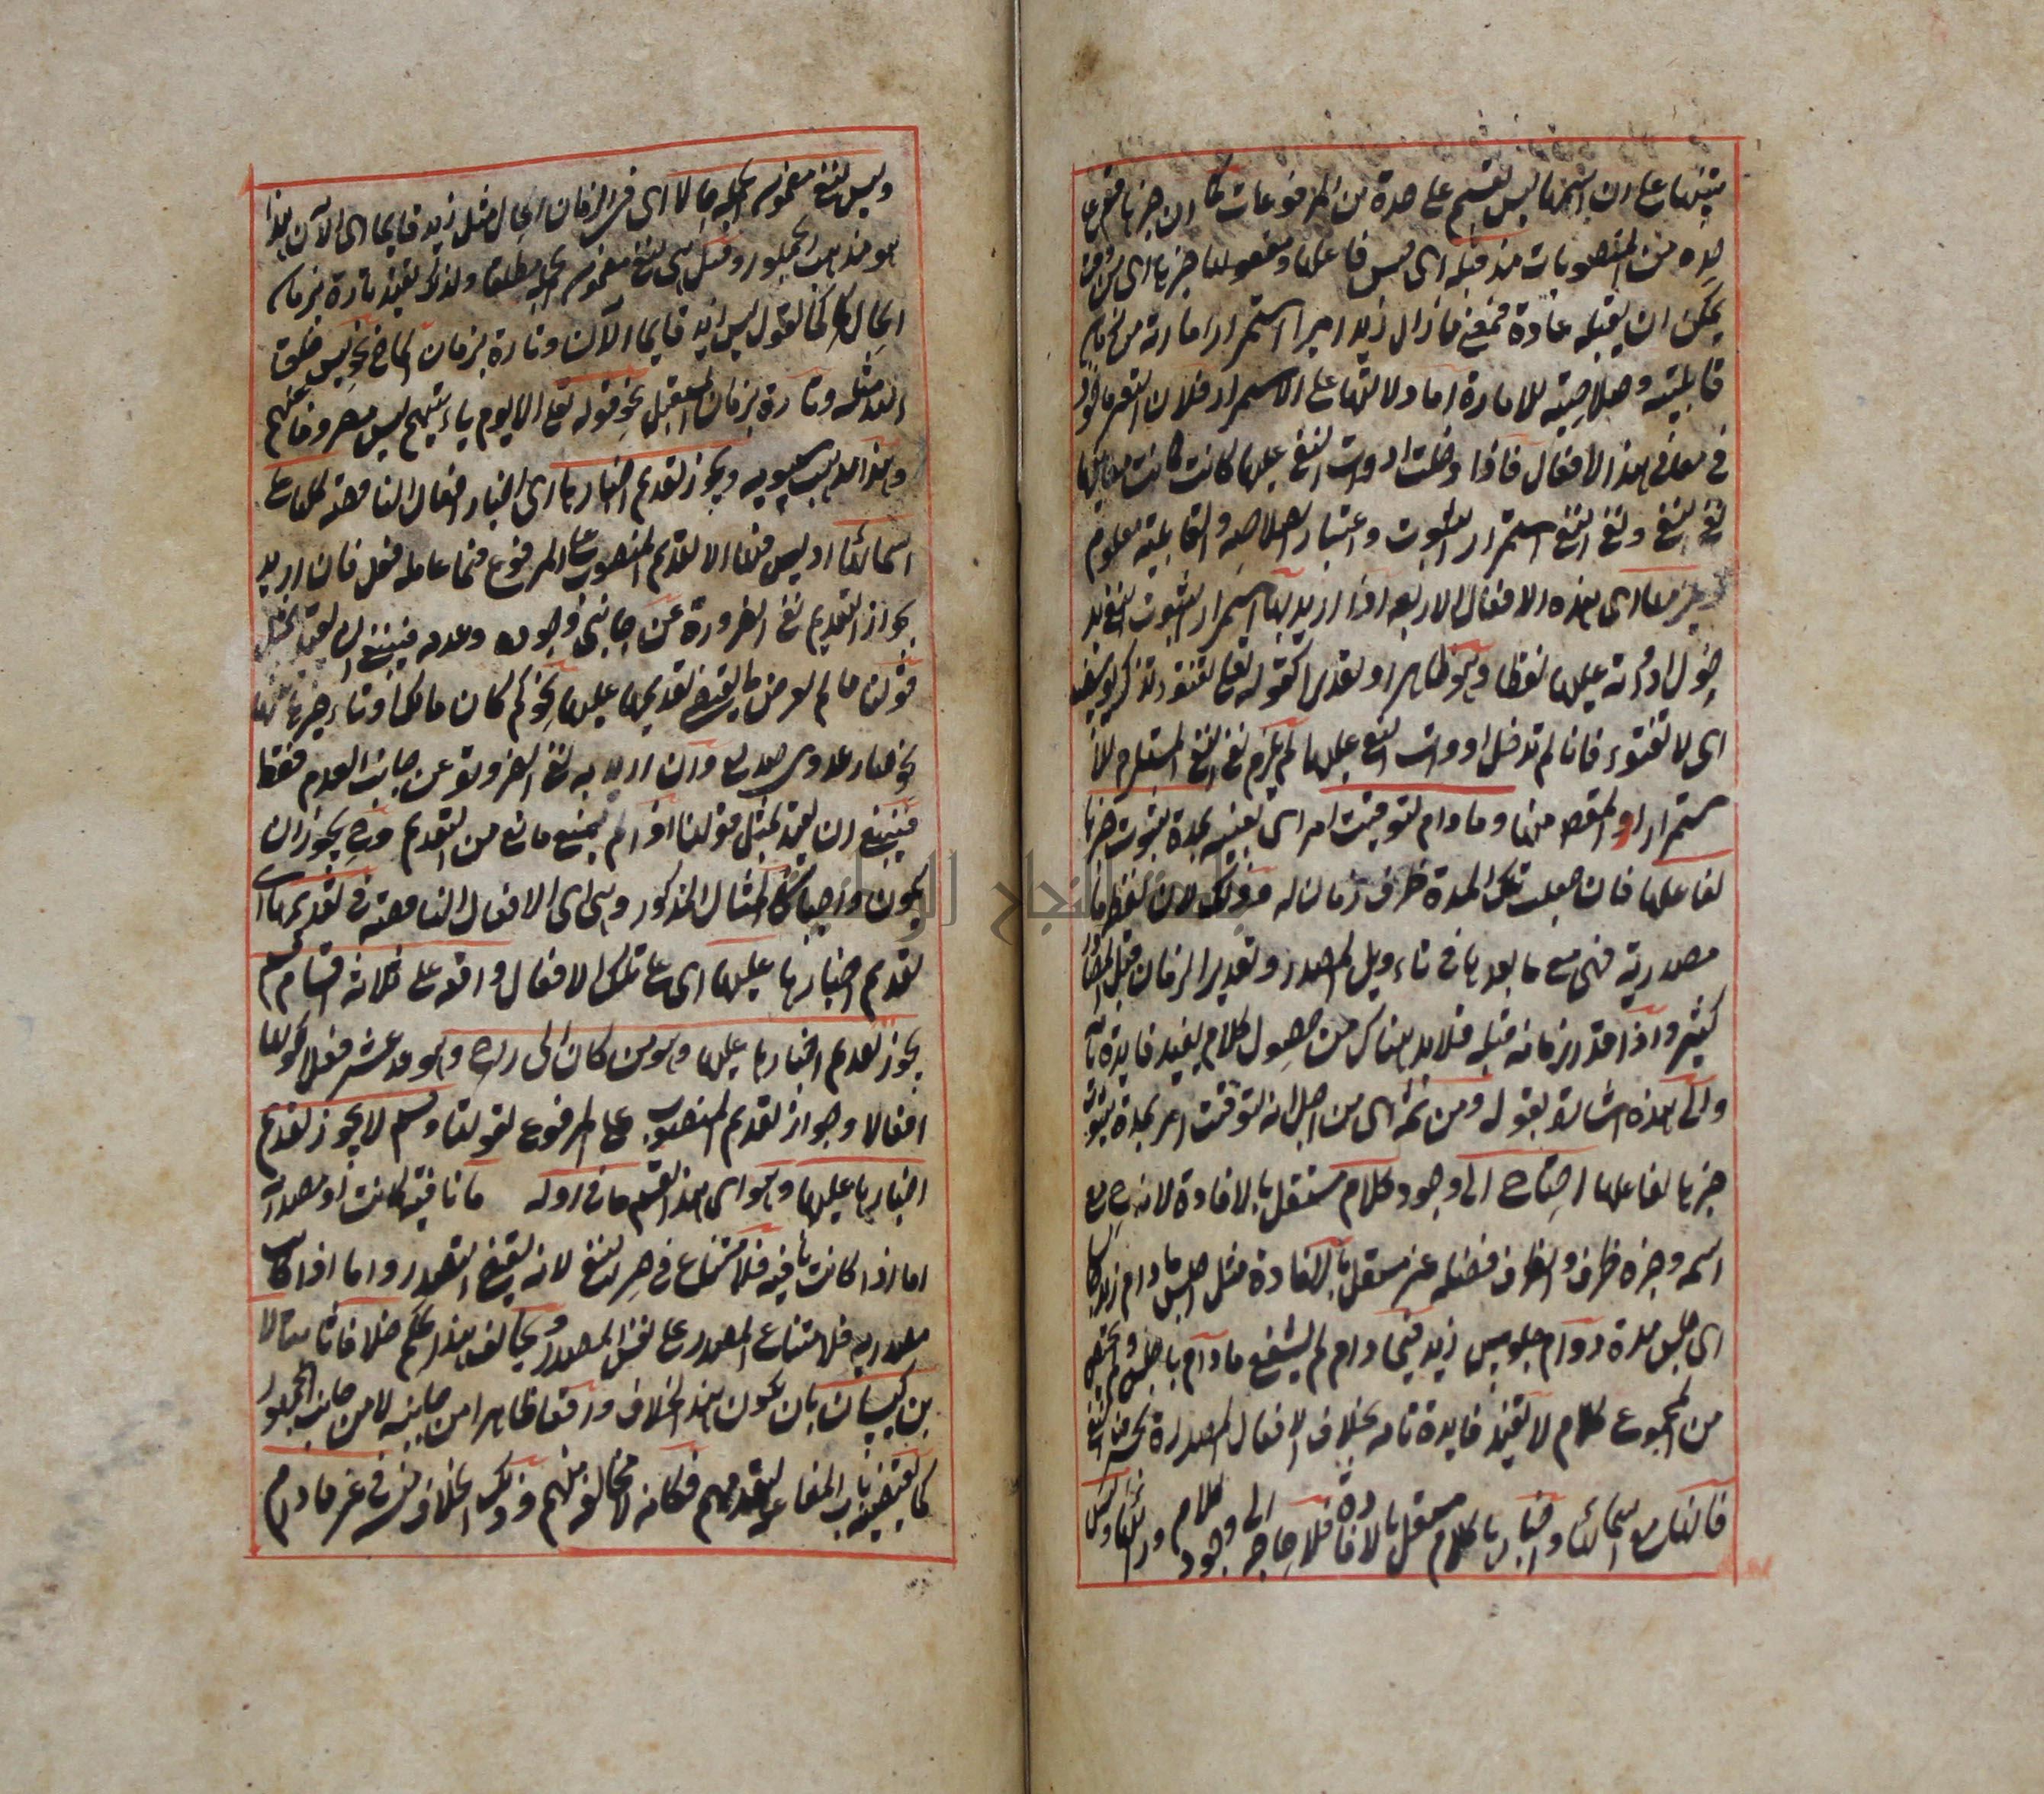 تنبيها على ان اسمها ليس بقسم على حدة من المرفوعات كما ان خبرها قسم على
حدة من المنصوبات مذ قبله اى مس فاعلها ومفعولها خبرها اى من وقت
يمكن ان يقبله عادة فمعنى ما زال زيد اميرا استمرار امارته من زمان
قابليته وصلاحيته للامارة اما دلالتها على الاستمرار فلان النفى ماخوذ
فى معانى هذه الافعال فاذا دخلت ادوات النفى عليها كانت معانيها
نفى النفى ونفى النفى استمرار الثبوت واعتبار الصلاحية والقابلية معلوم
ويلزمها اى هذه الافعال الاربعة اذا اريد بها استمرار الثبوت النفى
دخول ادوته عليها لفظا وهو ظاهر او تقديرا كقوله تعالى تفتؤ تذكر يوسف
اى لا تفتوء فانه لم تدخل ادوات النفى عليها لم يلزم نفى النفى المستلزم للا
ستمرار المقصود منها وما دام لتوقيت امر اى تعيينه بمدة ثبوت خبرها
لفاعلها فان جعلت تلك المدة ظرف زمان له وذلك لان لفظة ما
مصدرية فهى مع ما بعدها فى تاءويل المصدر وتقدير الزمان قبل المصادر
كثير واذا قدر زمانه قبله فلا بد هناك من حصول كلام يفيد فايدة تامة
والى هذه اشار بقوله ومن ثم اى من اجل انه لتوقيت امر بمدة ثبوت
خبرها لفاعلها احتاج الى وجود كلام مستقل بالافادة لانه ح مع
اسمه وخبره ظرف والظرف فضلة غير مستقل بالافادة مثل اجلس ما دام زيد جالسا
اى اجلس مدة دوام جلوس زيد فما دام لم ينضم ما دام باجلس ولم يحصل
من المجموع كلام لا يفيد فايدة تامة بخلاف الافعال المصدرة بحرف النفى
فانها مع اسمائها واخبارها كلام مستقل بالافادة فلا حاجة الى وجود كلام ورائها وليس
وليس لنفى مضمون الجملة حالا اى فى الزمان الحال مثل ليس زيد قايما اى الآن هذا
هو مذهب الجمهور وقيل هى لنفى مضمون الجملة مطلقا ولذلك تقيد تارة بزمان
الحال كما تقول ليس زيد قايما الآن وتارة بزمان الماضى نحو ليس خلق
الله مثله وتارة بزمان المستقبل نحو قوله تعالى الا يوم ياءتيهم ليس مصروفا عنهم
وهذا مذهب سيبويه ويجوز تقديم اخبارها اى اخبار افعال الناقصة كلها على
اسمائها اذ ليس فيها الا تقديم المنصوب على المرفوع فيما عامله فعل فان اريد
بجواز التقديم نفى الضرورة عن جانبى وجوده وعدمه فينبغى ان يقيد بمثل
قولنا ما لم يعرض ما يقتضى تقديمها عليها نحو كم كان مالك او تاءخيرها عنها
نحو صار عدوى صديقى وان اريد به نفى الضرورة عن جانب العدم فقط
فينبغى ان يقيد بمثل قولنا اذا لم يمنع مانع من التقديم وح يجوز ان
يكون واجبا كالمثال المذكور وهى اى الافعال الناقصة فى تقديمها اى
تقديم اخبارها عليها اى على تلك الافعال واقعة على ثلاثة اقسام قسم
يجوز تقديم اخبارها عليها وهو من كان الى راح وهو احد عشر فعلا لكونها
افعالا وجواز تقديم المنصوب على المرفوع لقوتها وقسم لا يجوز تقديم
اخبارها عليها وهو اى هذا القسم ما فى اوله ما نافية كانت او مصدرية
اما اذا كانت نافية فلامتناع فى حيز النفى لانه يقتضى التصدر واما اذا كانت
مصدرية فلامتناع المصدر على نفس المصدر ويخالف هذا الحكم خلافا ثابتا لا
بن كيسان بان يكون هذا الخلاف واقعا ظاهرا من جانبه لا من جانب الجمهور
كما يقتضيه باب المفاعلة لتقدمهم فكانه لا مخالفة منهم وذلك الخلاف ليس فى غير ما دام